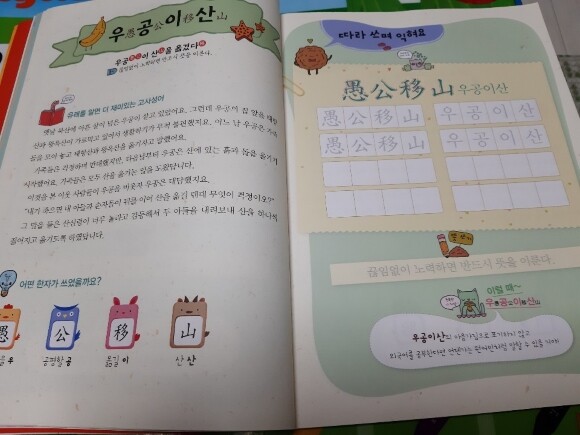 우愚공公이移산山
우공이 산을 옮겼다
끊임없이 노력하면 뜻을 이룬다.
유래를 알면 더 재미있는 고사성어
옛날 북산에 아흔 살이 넘은 우공이 살고 있었어요. 그런데 우공이 집 앞을 태항
산과 왕옥산이 가로막고 있어서 생활하기가 무척 불편했지요. 어느 날 우공은 가족
들을 모아 놓고 태항산과 왕옥산을 옮기자고 말했어요.
가족들은 걱정하며 반대했지만, 다음날부터 우공은 산에 있는 흙과 돌을 옮기기
시작했어요. 가족들은 모두 산을 옮기는 일을 도왔답니다.
이것을 본 이웃 사람들이 우공을 비웃자 우공은 대답했지요.
"내가 죽으면 내 아들과 손자들이 뒤를 이어 산을 옮길 텐데 무엇이 걱정이오?"
그 말을 들은 산신령이 너무 놀라고 감동해서 두 아들을 내려보내 산을 하나씩
짊어지고 옮기도록 하였답니다.
어떤 한자가 쓰였을까요?
愚 公 移 山
우 공평할 공 옮길 이 산 산
따라 쓰며 익혀요
愚公移山 우공이산
愚 公 移 山 우 공 이 산
愚 公 移 山 우 공 이 산
끊임없이 노력하면 반드시 뜻을 이룬다.
이럴 때~
우愚공公이移산山
우공이산의 마음가짐으로 포기하지 않고
외국어를 공부한다면 언젠가는 원어민처럼 말할 수 있을 거야!